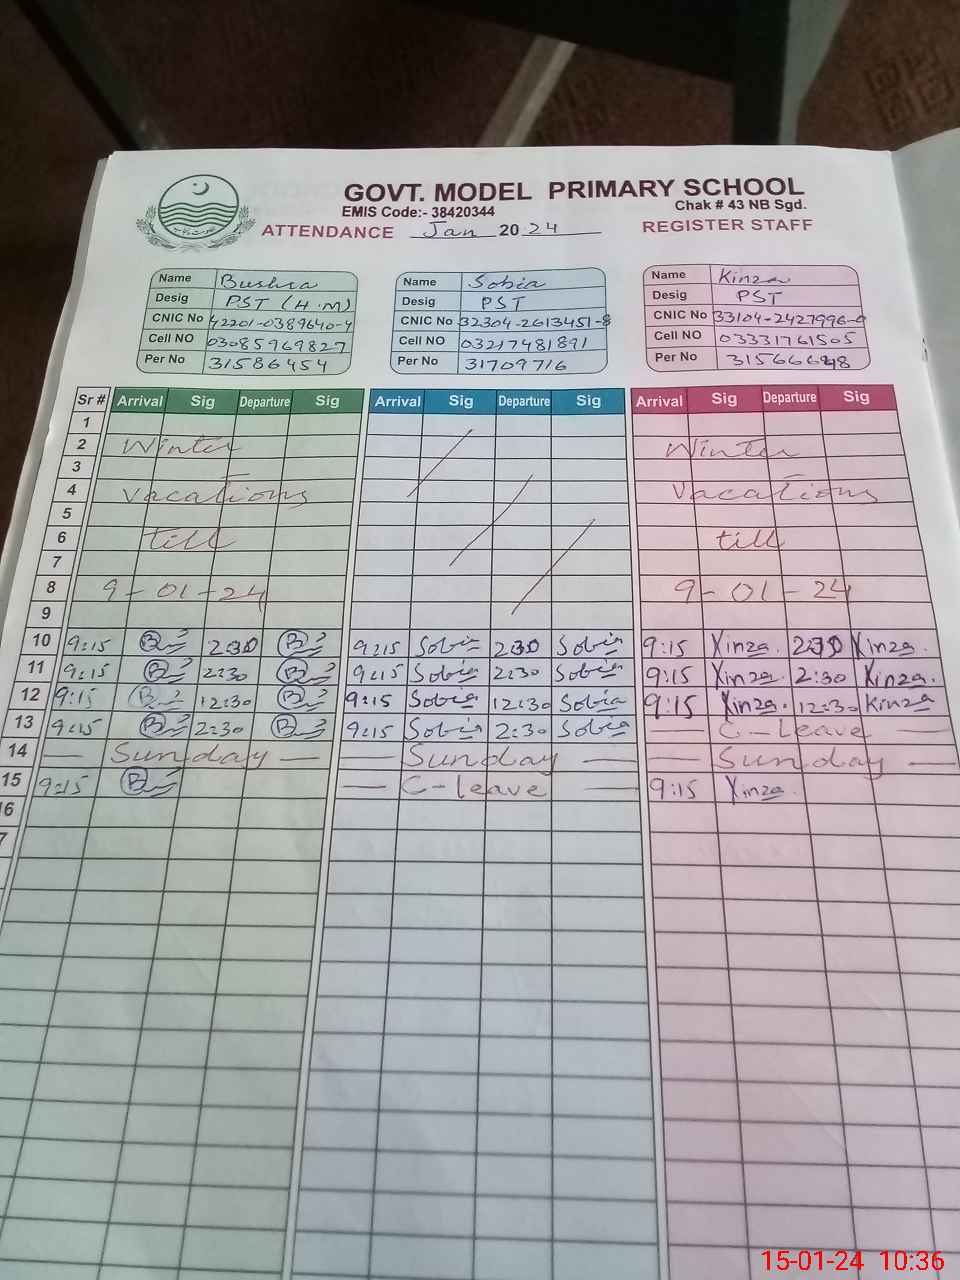 GOVT. MODEL PRIMARY SCHOOL
EMIS Code:- 38420344 Chak # 43 NB Sgd.
ATTENDANCE Jan 2024 REGISTER STAFF
Name Bushra Name Sobia Name Kinza
Desig PST (H.M) Desig PST Desig PST
CNIC No 42201-0389640-4 CNIC No 32304-2613451-8 CNIC No
Cell NO 03085969827 Cell NO 03217481891 Cell NO 03331761505
Per No 31586454 Per No 31709716 Per No
Sr # Arrival Sig Departure Sig Arrival Sig Departure Sig Arrival Sig Departure Sig
1
2 Winter Winter
3
4 Vacations Vacations
5
6 till till
7
8 9-01-24 9-01-24
9
10 9:15 B 2:30 B 9:15 Sobia 2:30 Sobia 9:15 Kinza. 2:30 Kinza.
11 9:15 B 2:30 B 9:15 Sobia 2:30 Sobia 9:15 Kinza. 2:30 Kinza.
12 9:15 B 12:30 B 9:15 Sobia 12:30 Sobia 9:15 Kinza. 12:30 Kinza
13 9:15 B 2:30 B 9:15 Sobia 2:30 Sobia — C-Leave —
14 — Sunday — — Sunday — — Sunday —
15 9:15 B — C-leave — 9:15 Kinza.
16
7
15-01-24 10:36